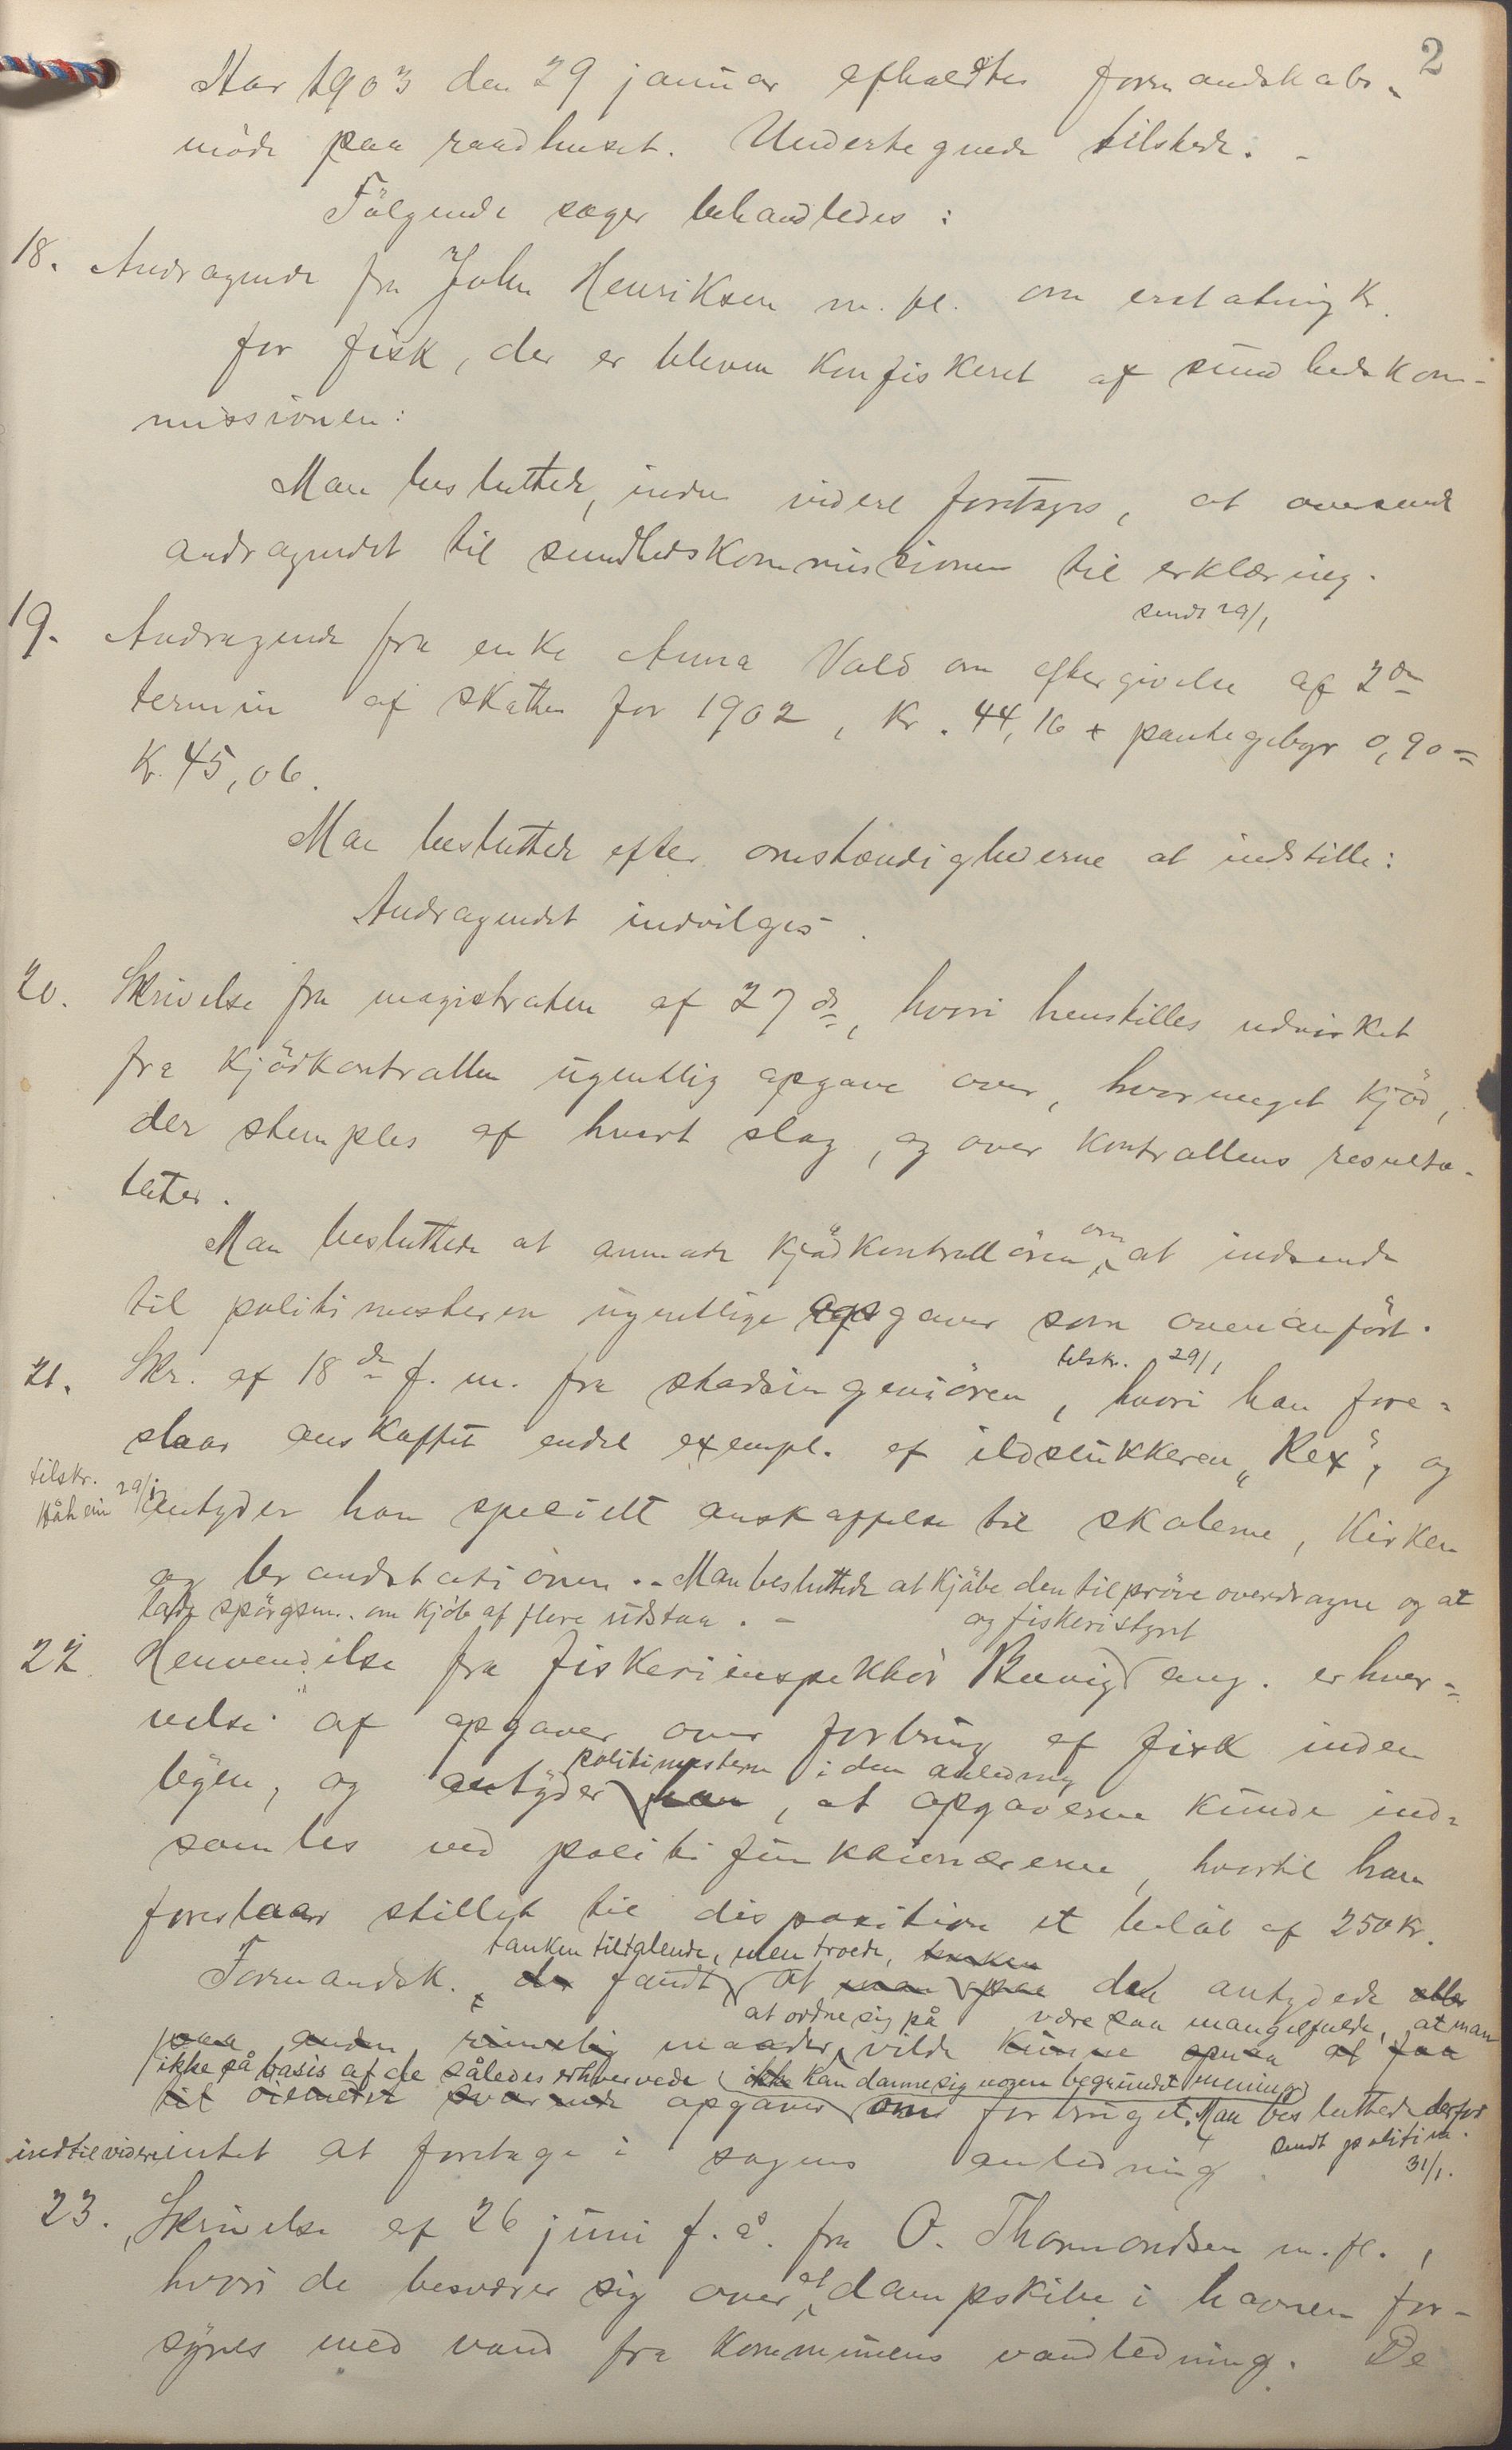 2
Aar 1903 den 29 januar afholdtes formandskabs-
möde paa raadhuset. Undertegnede tilstede. -
Fölgende sager behandledes:
18. Andragende fra John Henriksen m. fl. om erstatning kr.
for fisk, der er bleven konfiskeret af sundhedskom-
missionen:
Man besluttede, inden videre foretages, at oversende
andragendet til sundhedskommissionen til erklæring.
sendt 29/1
19. Andragende fra enke Anna Vold om eftergivelse af 2den
termin af skatten for 1902, kr. 44,16 + pantegebyr 0,90 =
kr. 45,06.
Man besluttede efter omstændighederne at indstille:
Andragendet indvilges.
20. Skrivelse fra magistraten af 27 ds, hvori henstilles udvirket
fra kjödkontrollen ugentlig opgave over, hvormeget kjöd,
der stemples af hvert slag, og over kontrollens resulta-
tater.
Man besluttede at anmode kjödkontrollören om at indsende
til politimesteren ugentlige opgaver som ovenanfört.
tilskr. 29/1
21. Skr. af 18de f. m. fra stadsingeniören, hvori han fore-
slaar anskaffet endel exempl. af ildslukkeren "Rex", og
tilskr. 29/1
antyder han specielt anskaffelse til skolerne, kirken
og brandstationen. - Man besluttede at kjöbe den til pröve overdragne og at
lade spörgsm. om kjöb af flere udstaa. -
og fiskeristyret
22. Henvendelse fra fiskeriinspektör Buvig ang. erhver-
velse af opgaver over forbrug af fisk inden
politimesteren i den anledning
byen, og antyder han, at opgaverne kunde ind-
samles ved politifunktionærerne, hvortil han
foreslaar stillet til disposition et belöb af 250 kr.
tanken tiltalende, men troede, tanken
Formandsk. der fandt at man paa den antydede eller
at ordne sig på være saa mangelfulde, at man
paa anden rimelig maade, vilde kunne opnaa at faa
ikke på basis af de således erhvervede ikke kan danne sig nogen begrundet mening
til öiemedet svarende opgaver om forbruget. Man besluttede derfor
indtil videre intet at foretage i sagens anledning.
sendt politim.
31/1.
23. Skrivelse af 26 juni f. å. fra O. Thormondsen m. fl.,
hvori de besværer sig over at dampskibe i havnen for-
synes med vand fra kommunens vandledning. De